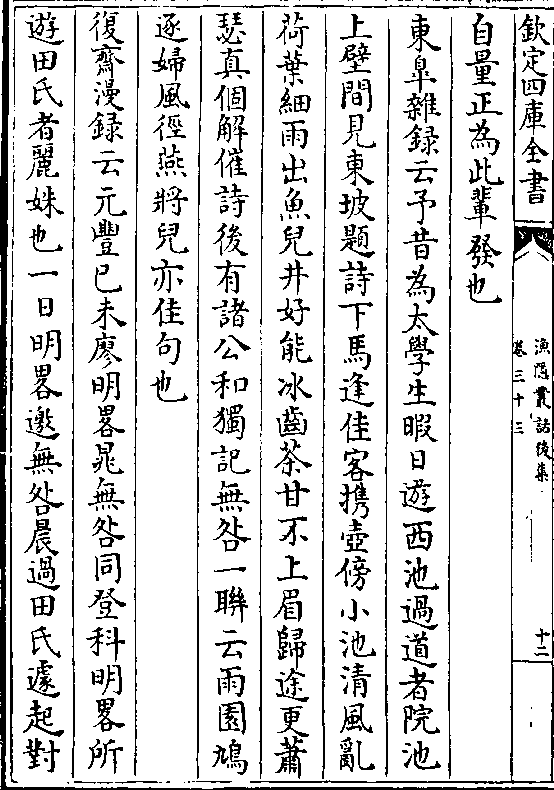 欽定四庫全書
漁隱叢話後集
卷三十三
十二
自量正為此輩發也
東臯雜録云予昔為太學生暇日遊西池過道者院池
上壁間見東坡題詩下馬逢佳客携壺傍小池清風亂
荷葉細雨出魚兒井好能冰齒茶甘不上眉歸途更蕭
瑟真個解催詩後有諸公和獨記無咎一聯云雨園鳩
逐婦風徑燕將兒亦佳句也
復齋漫録云元豐己未廖明畧晁無咎同登科明畧所
遊田氏者麗姝也一日明畧邀無咎晨過田氏遽起對